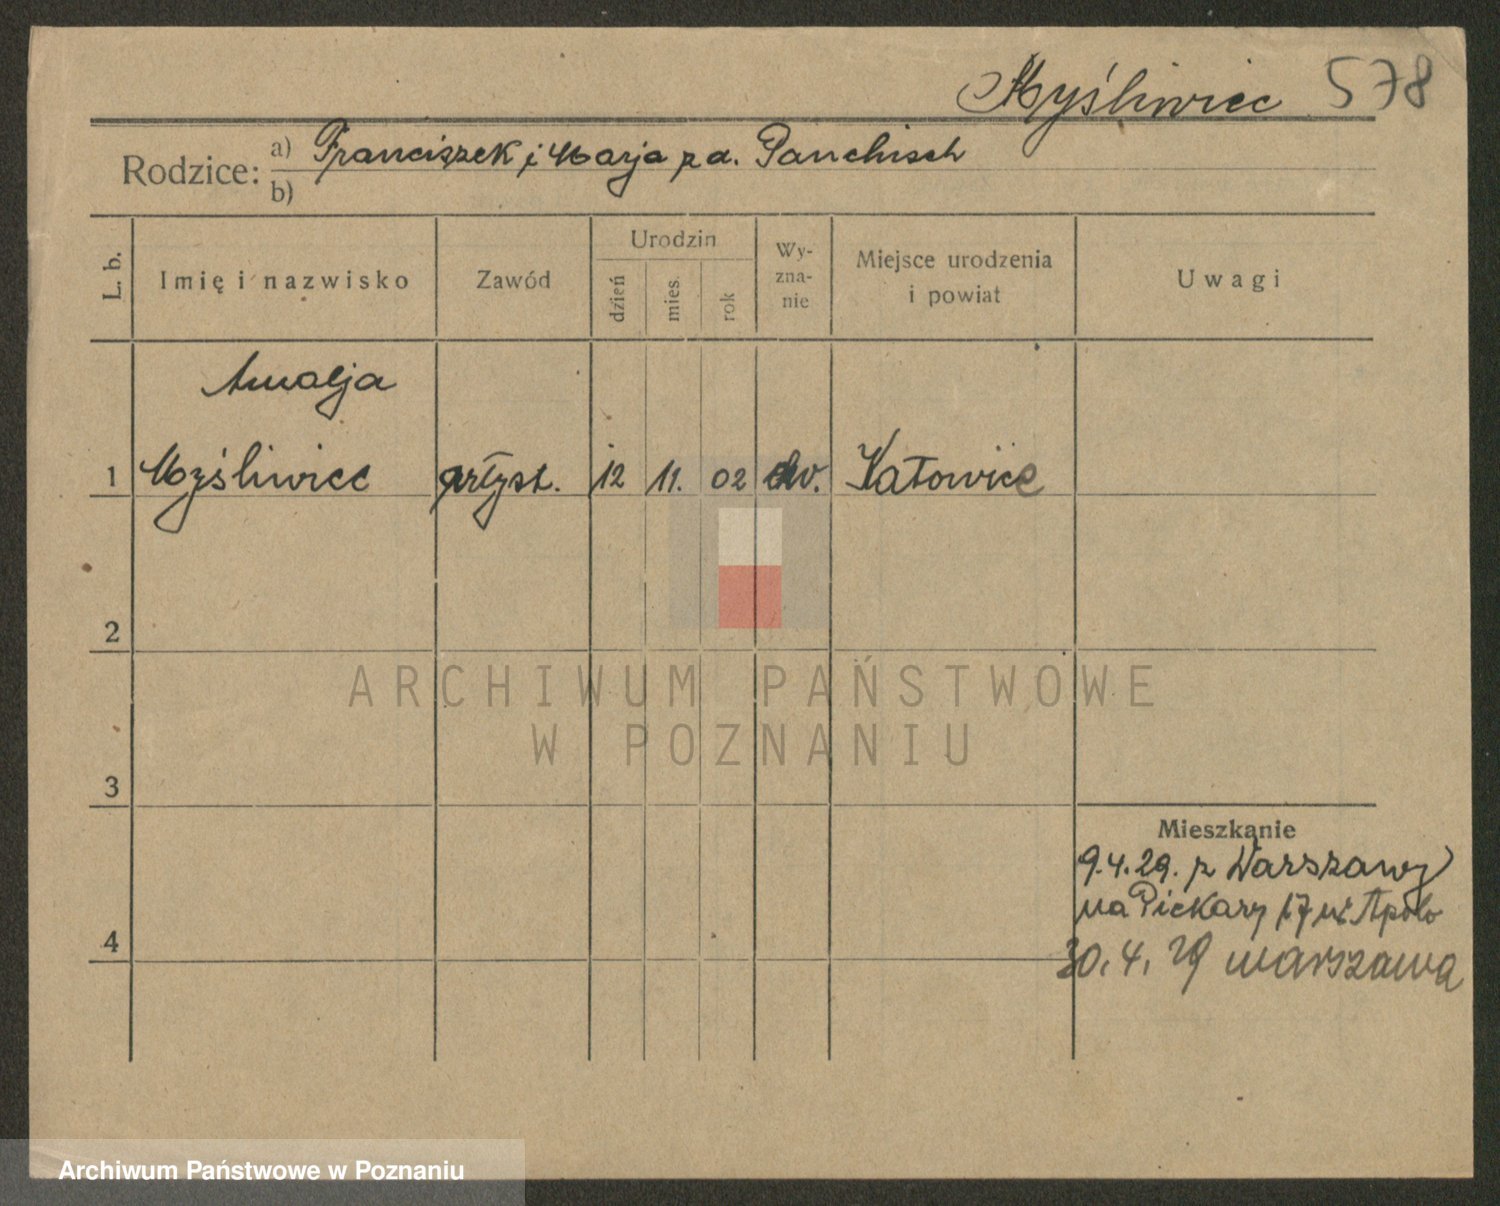 Myśliwiec 578
Rodzice: a) Franciszek i Marja z d. Panchisch
b)
L. b. Imię i nazwisko Zawód Urodzin dzień mies. rok Wy-zna-nie Miejsce urodzenia i powiat Uwagi
Amalja
1 Myśliwiec artyst. 12 11. 02 Katowice
2
ARCHIWUM PAŃSTWOWE
W POZNANIU
3
Mieszkanie
9.4.29. z Warszawy
na Piekary 17 Apolo
4
30. 4. 29 Warszawa
Archiwum Państwowe w Poznaniu